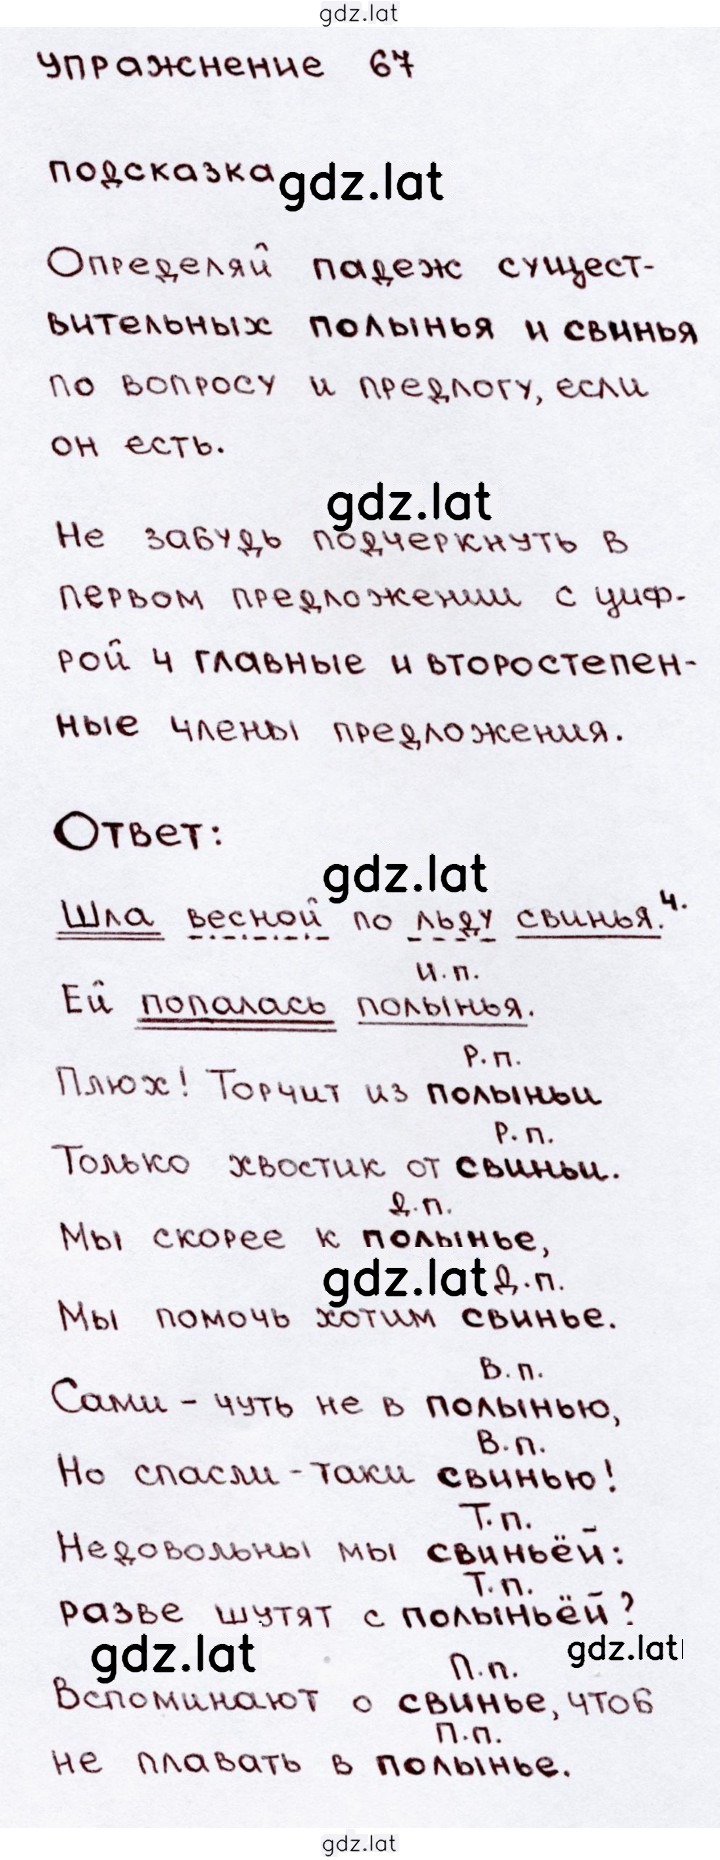 gdz.lat
упражнение 67
подсказка
gdz.lat
Определяй падеж сущест-
вительных полынья и свинья
по вопросу и предлогу, если
он есть.
gdz.lat
Не забудь подчеркнуть в
первом предложении с циф-
рой 4 главные и второстепен-
ные члены предложения.
Ответ:
gdz.lat
Шла весной по льду свинья.⁴·
И.п.
Ей попалась полынья.
Р.п.
Плюх! Торчит из полыньи
Р.п.
Только хвостик от свиньи.
Д.п.
Мы скорее к полынье,
gdz.lat Д.п.
Мы помочь хотим свинье.
В.п.
Сами - чуть не в полынью,
В.п.
Но спасли-таки свинью!
Т.п.
Недовольны мы свиньёй:
Т.п.
разве шутят с полыньёй?
gdz.lat
gdz.lat
П.п.
Вспоминают о свинье, чтоб
П.п.
не плавать в полынье.
gdz.lat